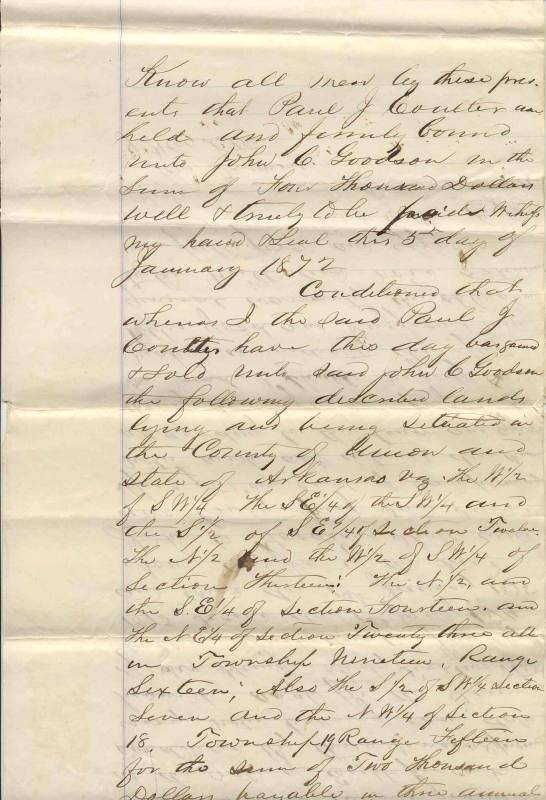 Know all men by these pres-
ents that Paul J Coulter am
held and firmly bound
unto John C. Goodson in the
sum of Four Thousand Dollars
well & truly to be paid Witness
my hand & Seal this 5th day of
January 1872
Conditioned that
whereas I the said Paul J
Coulter have this day bargained
& sold unto said John C Goodson
the following described lands
lying and being situated in
the County of Union and
state of Arkansas viz The W1/2
of SW1/4 The SE1/4 of the SW1/4 and
the S1/2 of SE1/4 of Section Twelve.
The N1/2 and the W1/2 of SW1/4 of
Section Thirteen: The N1/2, and
the S.E1/4 of Section Fourteen. and
the NE1/4 of Section Twenty three all
in Township Nineteen, Range
Sixteen; Also The S1/2 of SW1/4 section
Seven and the NW1/4 of Section
18. Township 19 Range Fifteen
for the sum of Two Thousand
Dollars payable in three annual